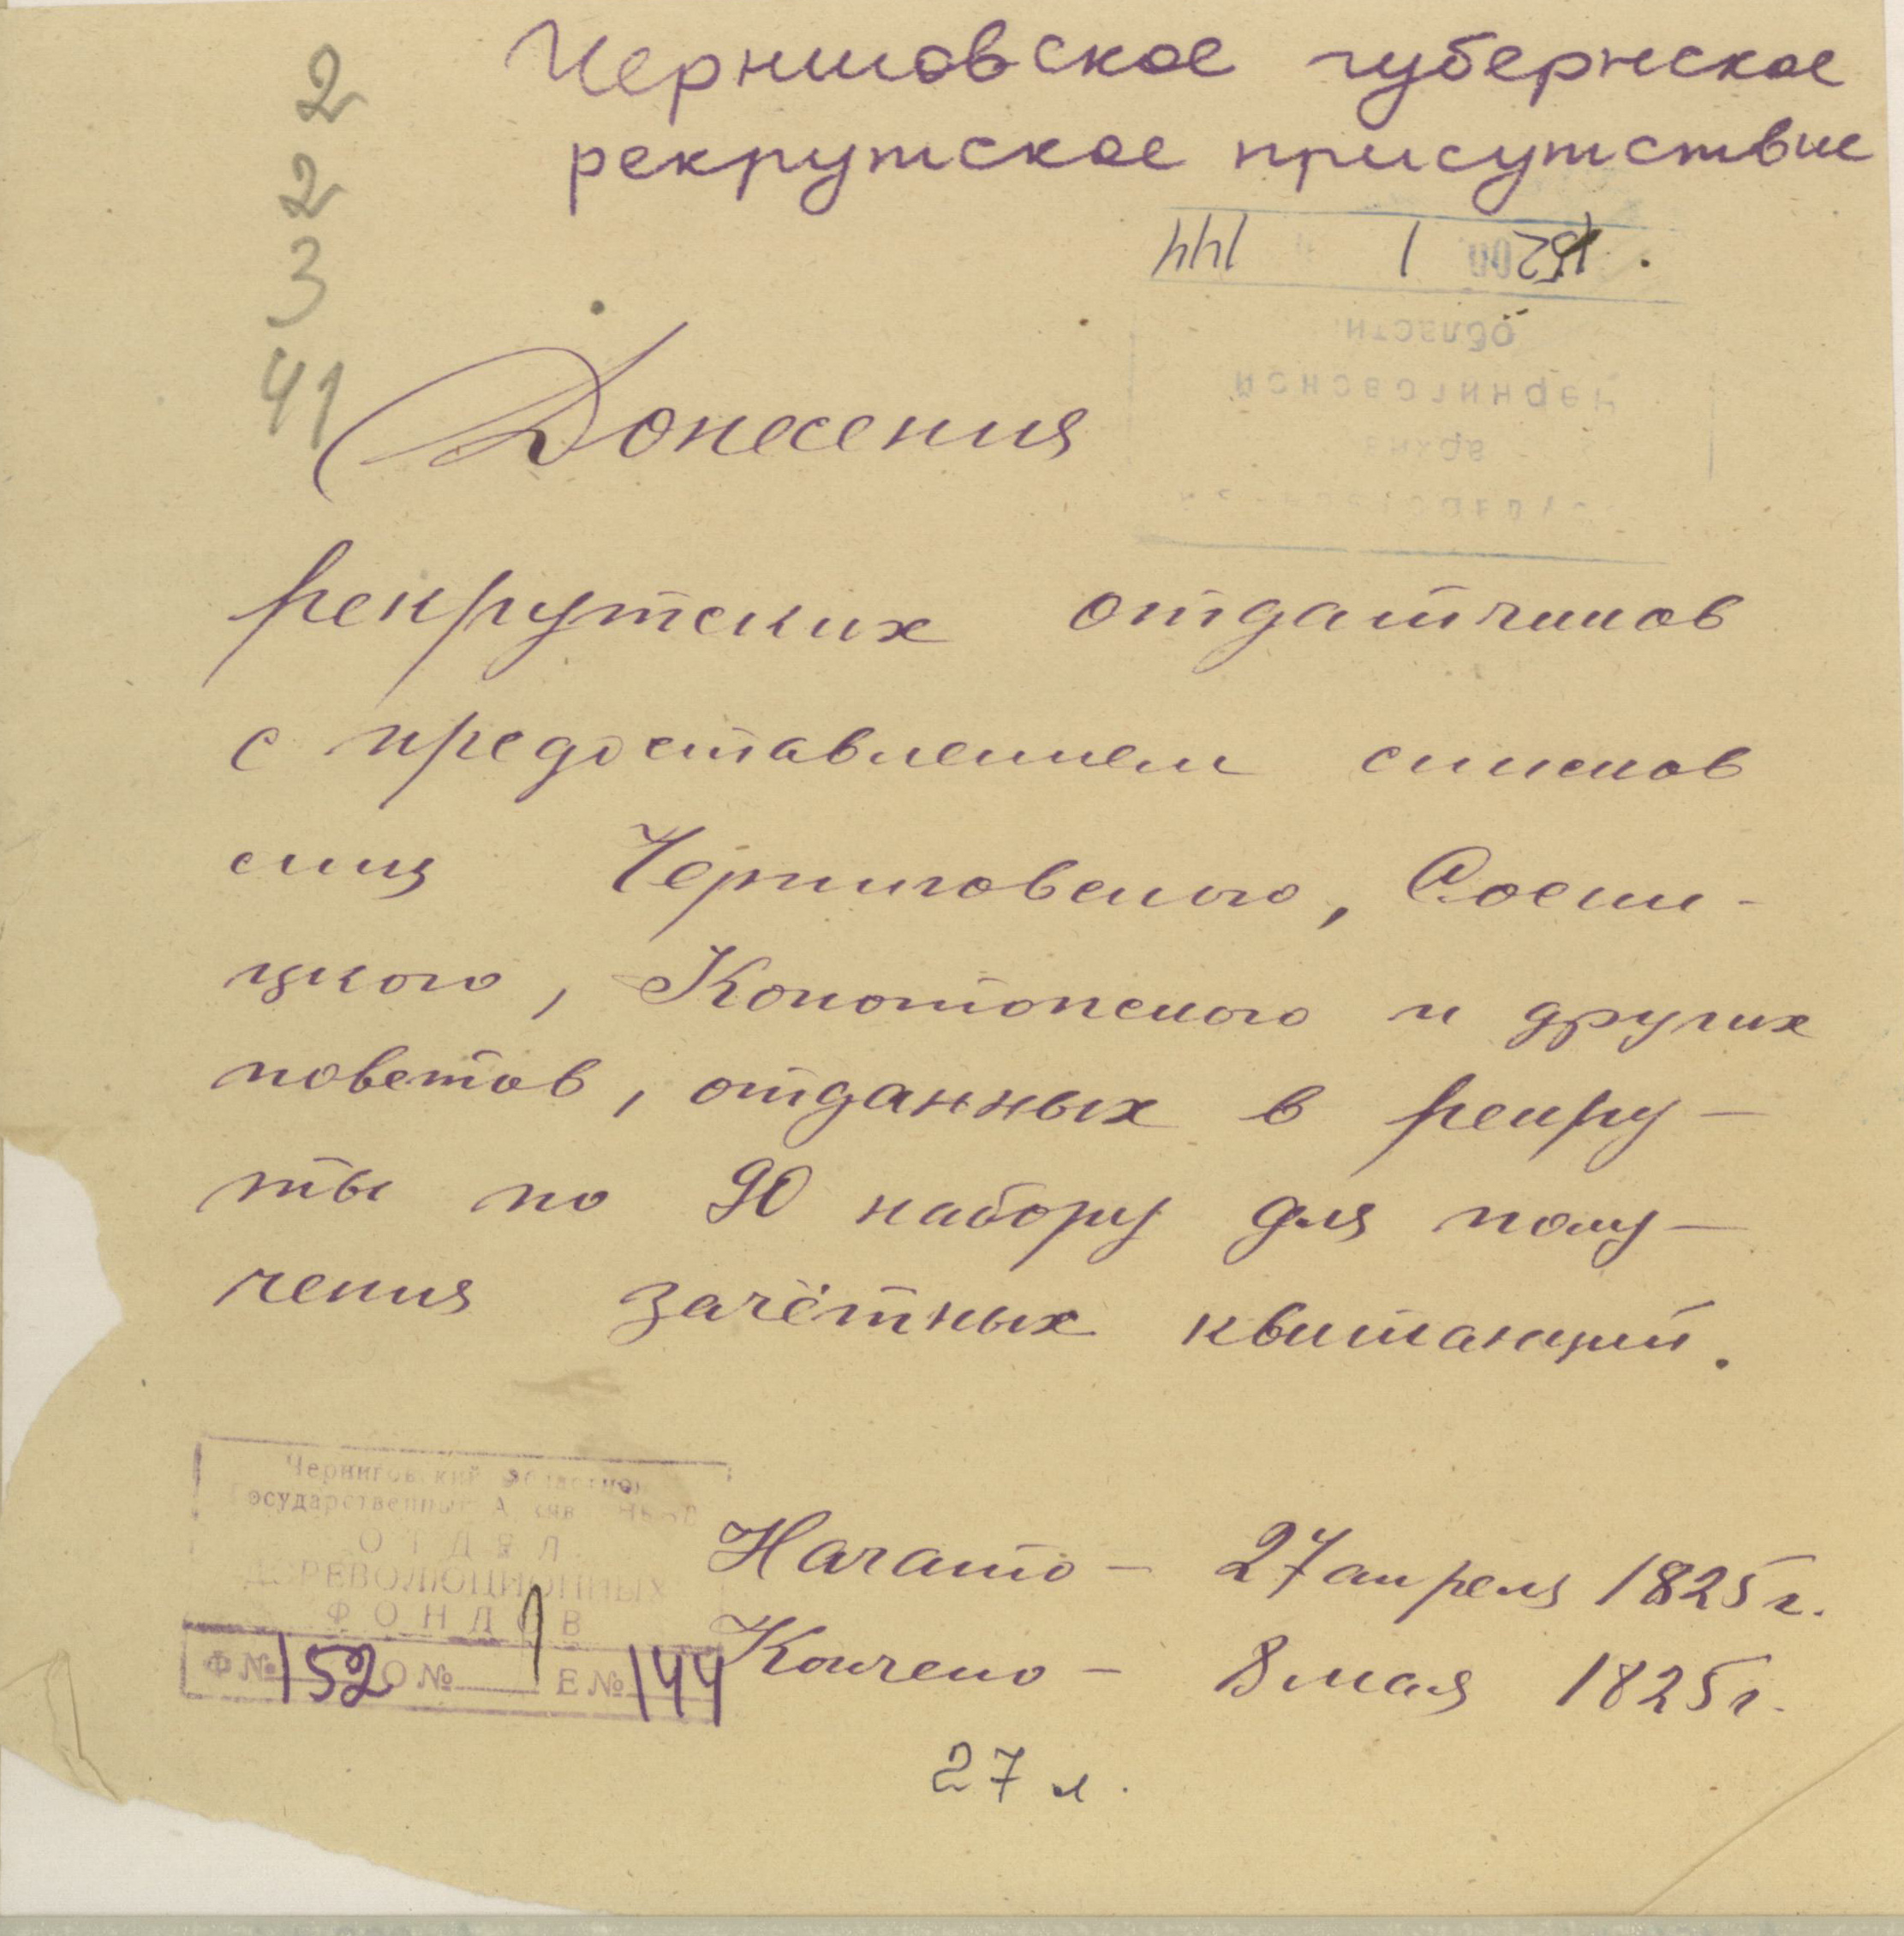 Черниговское губернское
рекрутское присутствие
2
2
3
41
152 1 144
Черниговской
области
Донесения
рекрутских отдатчиков
с предоставлением списков
лиц Черниговского, Сосни-
цкого, Конотопского и других
поветов, отданных в рекру-
ты по 90 набору для полу-
чения зачётных квитанций.
Черниговский Областной
Государственный Архив НКВД
ОТДЕЛ
ДОРЕВОЛЮЦИОННЫХ
ФОНДОВ
Ф № 152 О № 1 Е № 144
Начато - 27 апреля 1825 г.
Кончено - 8 мая 1825 г.
27 л.